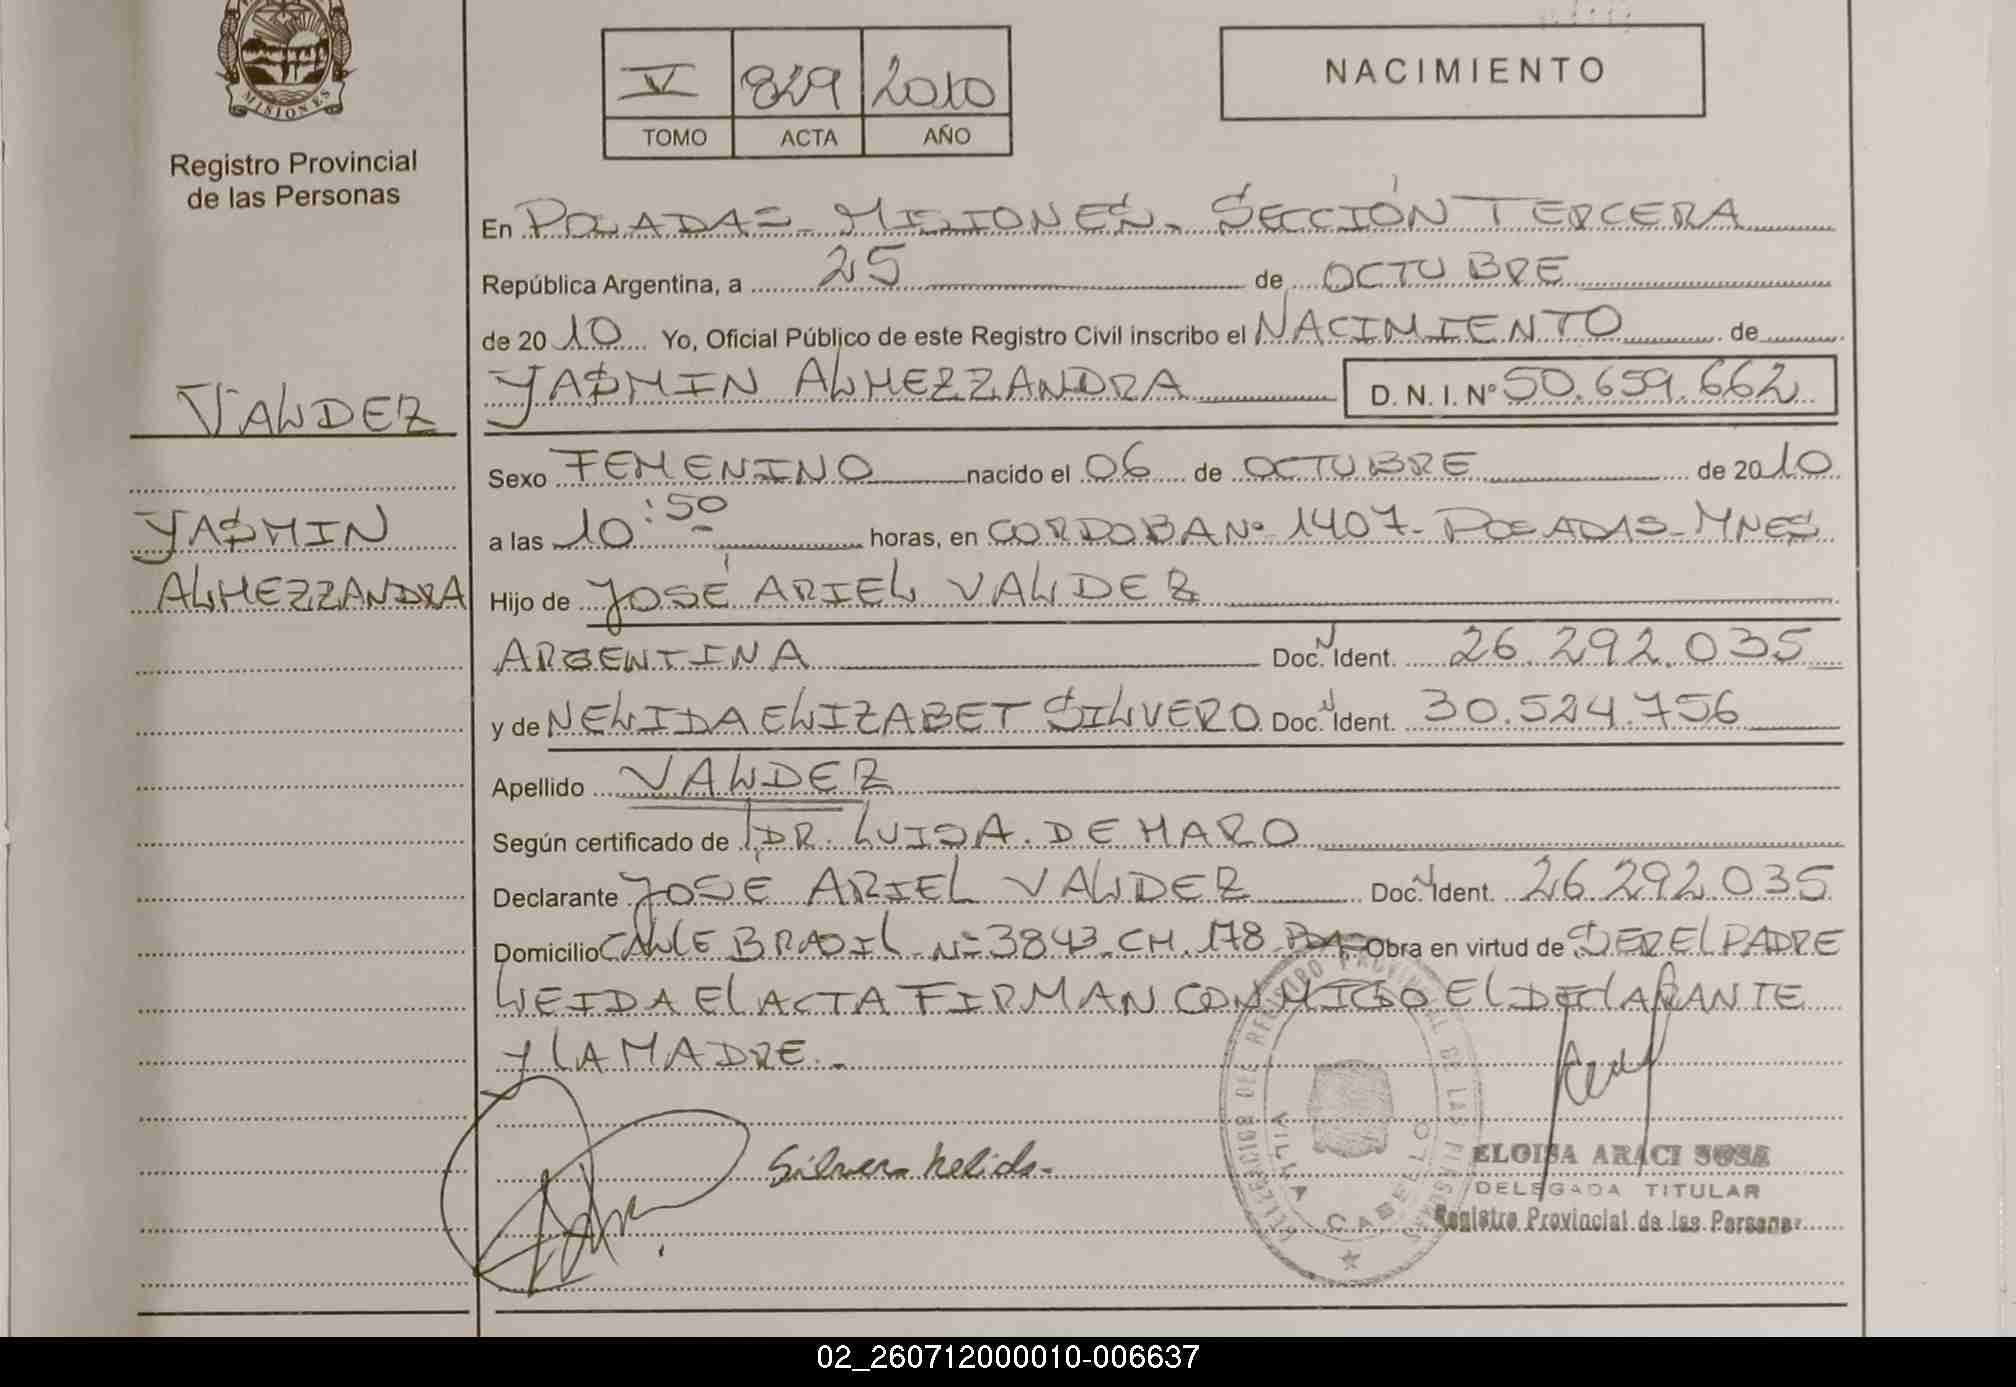 MISIONES
Registro Provincial
de las Personas
V 829 2010
TOMO ACTA AÑO
NACIMIENTO
En POSADAS - MISIONES - SECCIÓN TERCERA
República Argentina, a 25 de OCTUBRE
de 2010 Yo, Oficial Público de este Registro Civil inscribo el NACIMIENTO de
YASMIN ALMEZZANDRA D. N. I. Nº 50.659.662
VALDEZ
Sexo FEMENINO nacido el 06 de OCTUBRE de 2010
YASMIN
a las 10:50 horas, en CORDOBA Nº 1407 - POSADAS - MNES
ALMEZZANDRA
Hijo de JOSÉ ARIEL VALDEZ
ARGENTINA Doc. N Ident. 26.292.035
y de NELIDA ELIZABET SILVERO Doc. N Ident. 30.524.756
Apellido VALDEZ
Según certificado de DR. LUIS A. DE HARO
Declarante JOSE ARIEL VALDEZ Doc. N Ident. 26.292.035
Domicilio CALLE BRASIL - Nº 3843 - CH. 178 - Obra en virtud de SER EL PADRE
LEIDA El ACTA FIRMAN CONMIGO El DEClARANTE
Y lA MADRE. -
Silvero Nelida -
VILLA CABELLO
ELOISA ARACI SOSA
DELEGADA TITULAR
Registro Provincial de las Personas
02_260712000010-006637